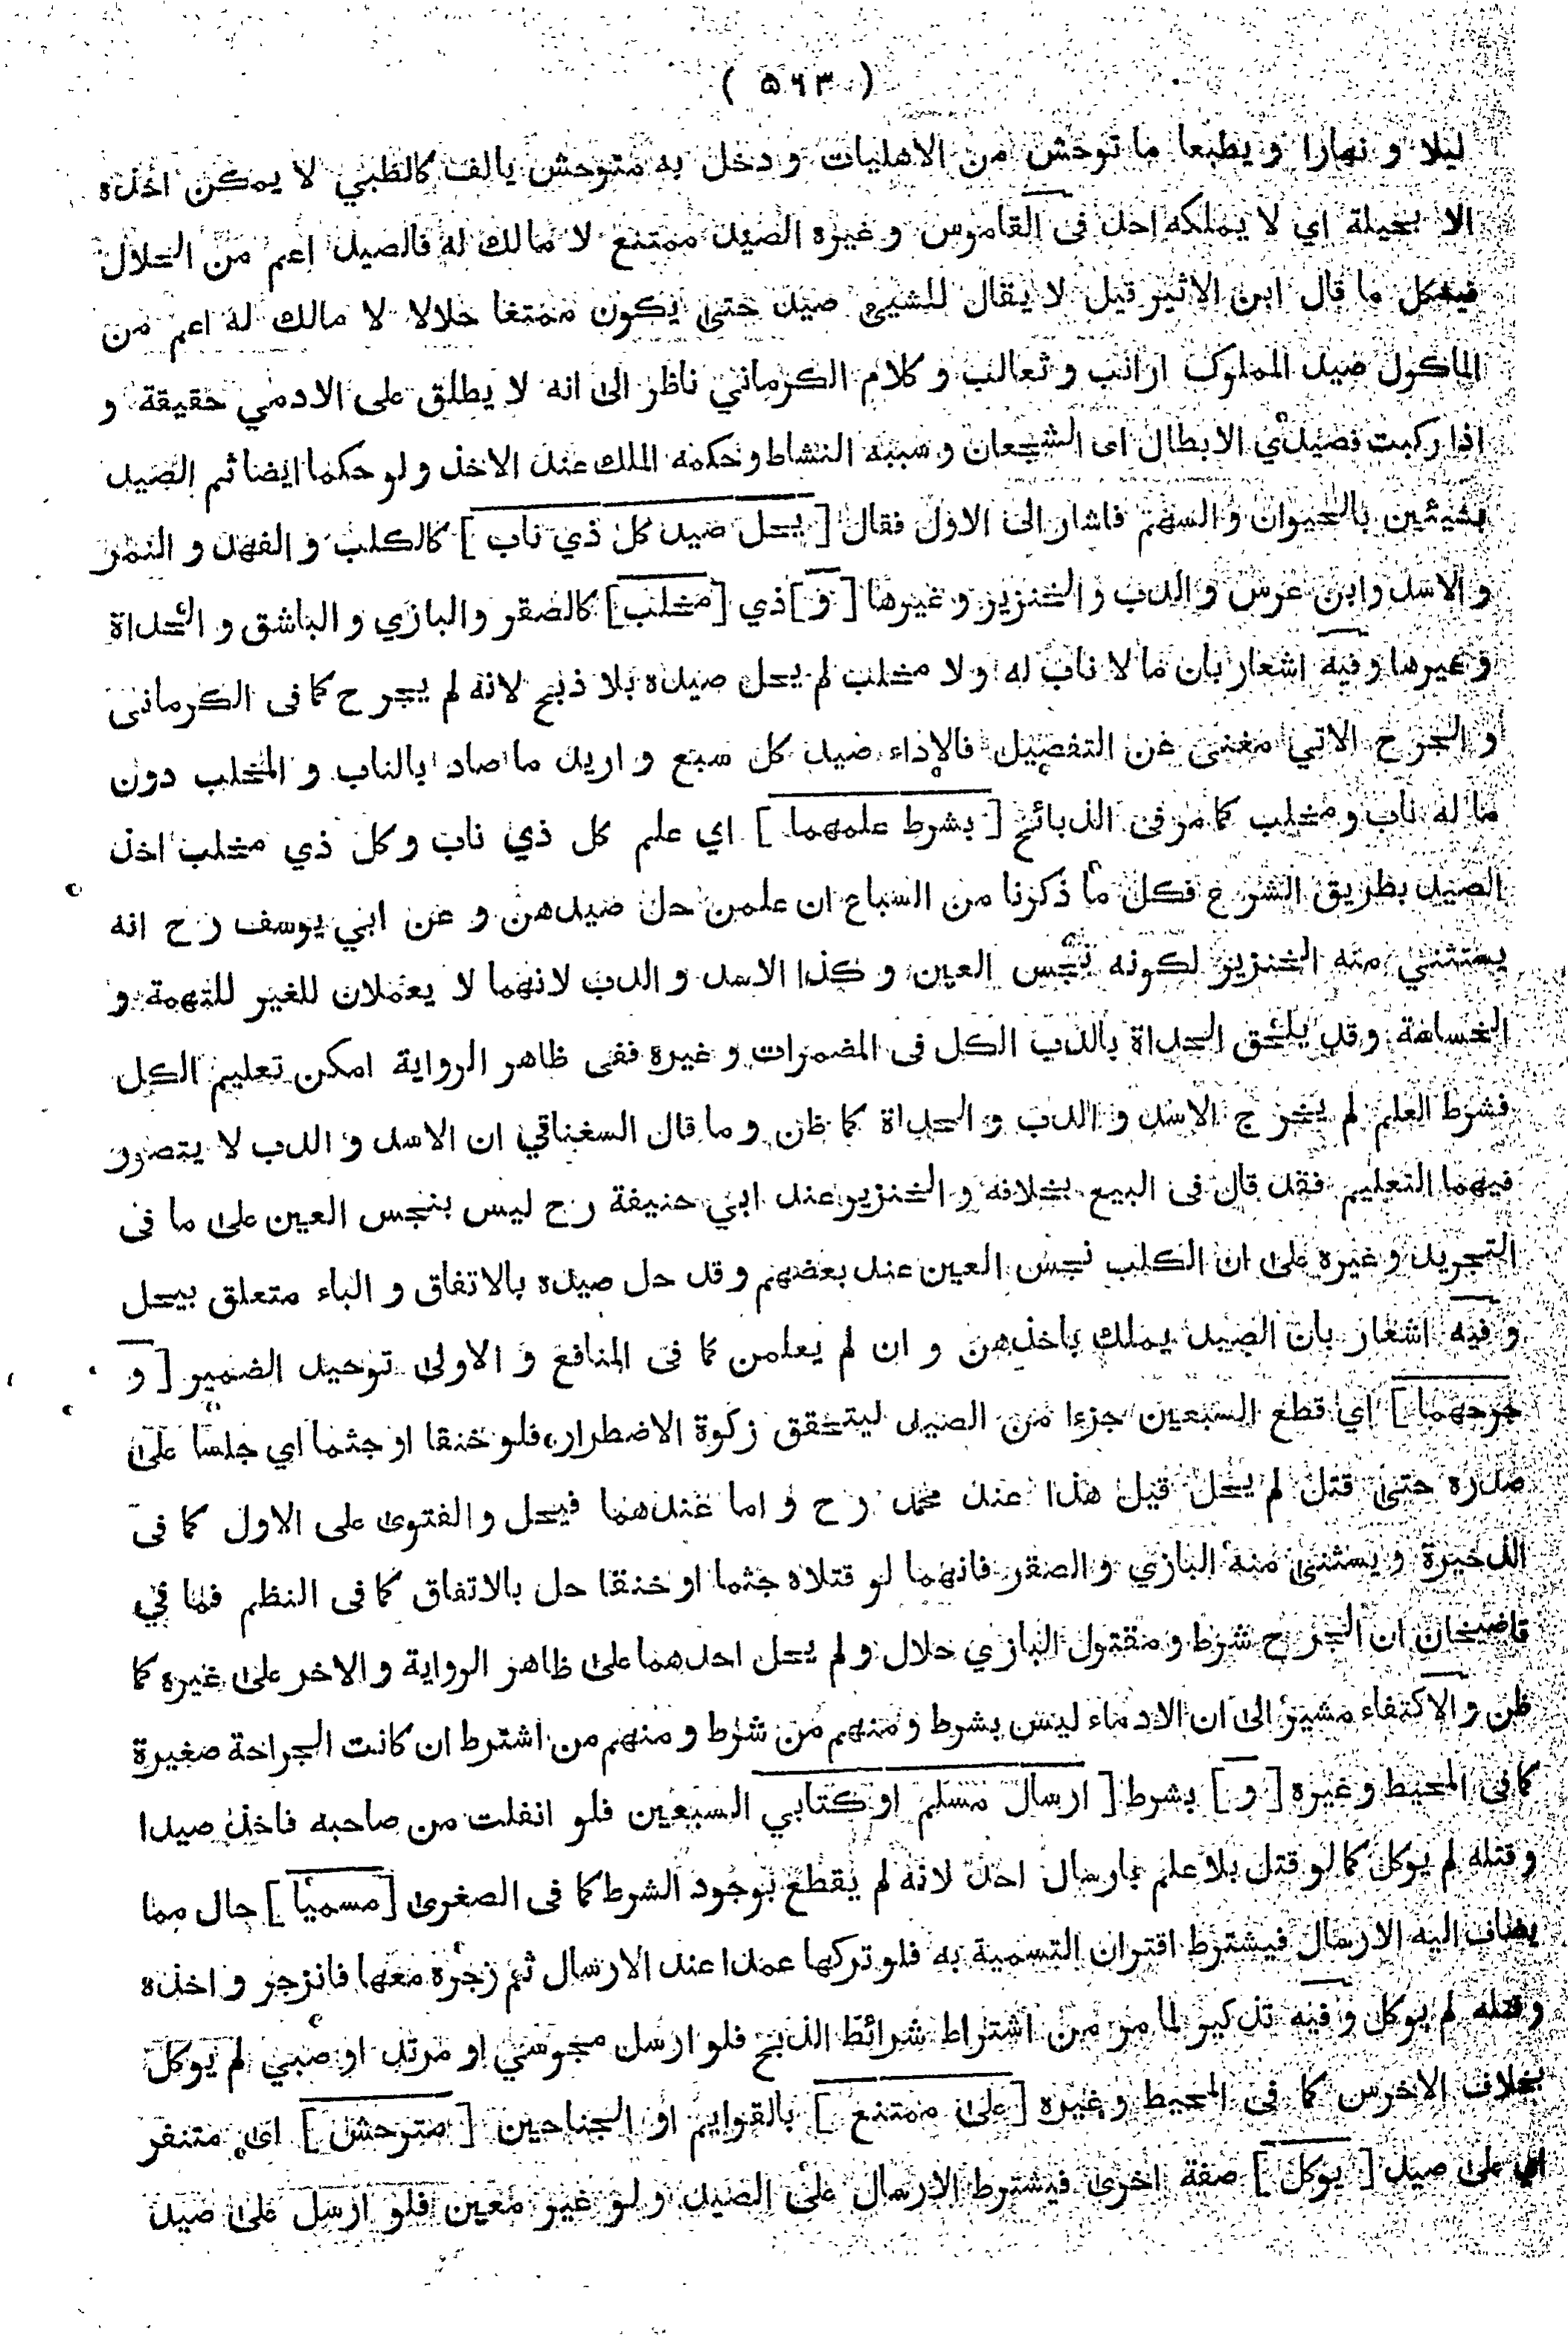 ( ۵۶۳ )
ليلا و نهارا و يطبعا ما توحش من الاهليات و دخل به متوحش يالف كالظبي لا يمكن اخذه
الا بحيلة اي لا يملكه احد فى القاموس و غيره الصيد ممتنع لا مالك له فالصيد اعم من الحلال
ما قال ابن الاثير قيل لا يقال للشيئ صيد حتى يكون ممتنعا حلالا لا مالك له اعم من
الماكول صيد الملوك ارانب و ثعالب و كلام الكرماني ناظر الى انه لا يطلق على الادمي حقيقة و
اذا ركبت فصيدي الابطال اى الشجعان و سببه النشاط و حكمه الملك عند الاخذ و لو حكما ايضا ثم الصيد
بشيئين بالحيوان و السهم فاشار الى الاول فقال [ يحل صيد كل ذي ناب ] كالكلب و الفهد و النمر
و الاسد و ابن عرس و الدب و الخنزير و غيرها [ و ] ذي [ مخلب ] كالصقر و البازي و الباشق و الحداة
و غيرها و فيه اشعار بان ما لا ناب له و لا مخلب لم يحل صيده بلا ذبح لانه لم يجرح كما فى الكرمانى
و الجرح الاتي مغنى عن التفصيل فالاداء صيد كل سبع و اريد ما صاد بالناب و المخلب دون
ما له ناب و مخلب كما مر فى الذبائح [ بشرط علمهما ] اي علم كل ذي ناب و كل ذي مخلب اخذ
الصيد بطريق الشرع فكل ما ذكرنا من السباع ان علمن حل صيدهن و عن ابي يوسف رح انه
يستثنى منه الخنزير لكونه نجس العين و كذا الاسد و الدب لانهما لا يعملان للغير للتهمة و
الخساسة و قد يلحق الحداة بالدب الكل فى المضمرات و غيره ففى ظاهر الرواية امكن تعليم الكل
فشرط العلم لم يخرج الاسد و الدب و الحداة كما ظن و ما قال السغناقي ان الاسد و الدب لا يتصور
فيهما التعليم فقد قال فى البيع بخلافه و الخنزير عند ابي حنيفة رح ليس بنجس العين على ما فى
التجريد و غيره على ان الكلب نجس العين عند بعضهم و قد حل صيده بالاتفاق و الباء متعلق بيحل
و فيه اشعار بان الصيد يملك باخذهن و ان لم يعلمن كما فى المنافع و الاولى توحيد الضمير [ و
جرحهما ] اي قطع السبعين جزءا من الصيد ليتحقق زكوة الاضطرار فلو خنقا او جثما اي جلسا على
صدره حتى قتل لم يحل قيل هذا عند محمد رح و اما عندهما فيحل و الفتوى على الاول كما فى
الذخيرة و يستثنى منه البازي و الصقر فانهما لو قتلاه جثما او خنقا حل بالاتفاق كما فى النظم فما في
قاضيخان ان الجرح شرط و مقتول البازي حلال و لم يحل احدهما على ظاهر الرواية و الاخر على غيره كما
ظن و الاكتفاء مشير الى ان الادماء ليس بشرط و منهم من شرط و منهم من اشترط ان كانت الجراحة صغيرة
كما فى المحيط و غيره [ و ] بشرط [ ارسال مسلم او كتابي السبعين فلو انفلت من صاحبه فاخذ صيدا
و قتله لم يوكل كما لو قتل بلا علم بارسال احد لانه لم يقطع بوجود الشرط كما فى الصغرى [ مسميا ] حال مما
يضاف اليه الارسال فيشترط اقتران التسمية به فلو تركها عمدا عند الارسال ثم زجره معها فانزجر و اخذه
و قتله لم يوكل و فيه تذكير لما مر من اشتراط شرائط الذبح فلو ارسل مجوسي او مرتد او صبي لم يوكل
بخلاف الاخرس كما فى المحيط و غيره [ على ممتنع ] بالقوايم او الجناحين [ متوحش ] اى متنفر
اي على صيد [ يوكل ] صفة اخرى فيشترط الارسال على الصيد و لو غير معين فلو ارسل على صيد